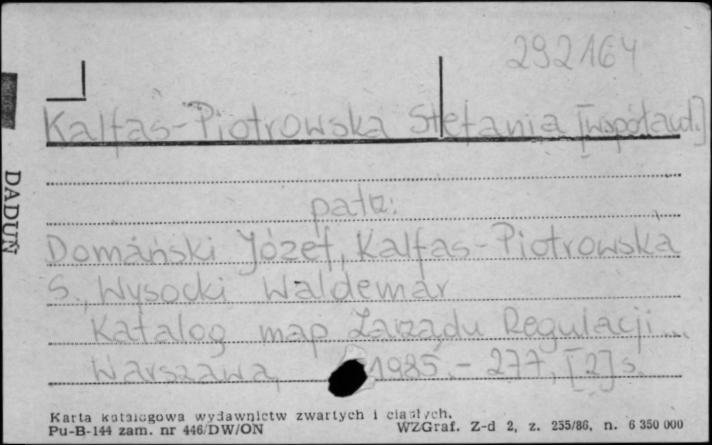 292164
Kalfas-Piotrowska Stefania [współaut.]
patrz:
Domański Józef, Kalfas-Piotrowska
S., Wysocki Waldemar
Katalog map Zarządu Regulacji...
Warszawa, 1985. - 277, [2] s.
DADUŃ
Karta katalogowa wydawnictw zwartych i ciągłych.
Pu-B-144 zam. nr 446/DW/ON WZGraf. Z-d 2, z. 255/86, n. 6 350 000